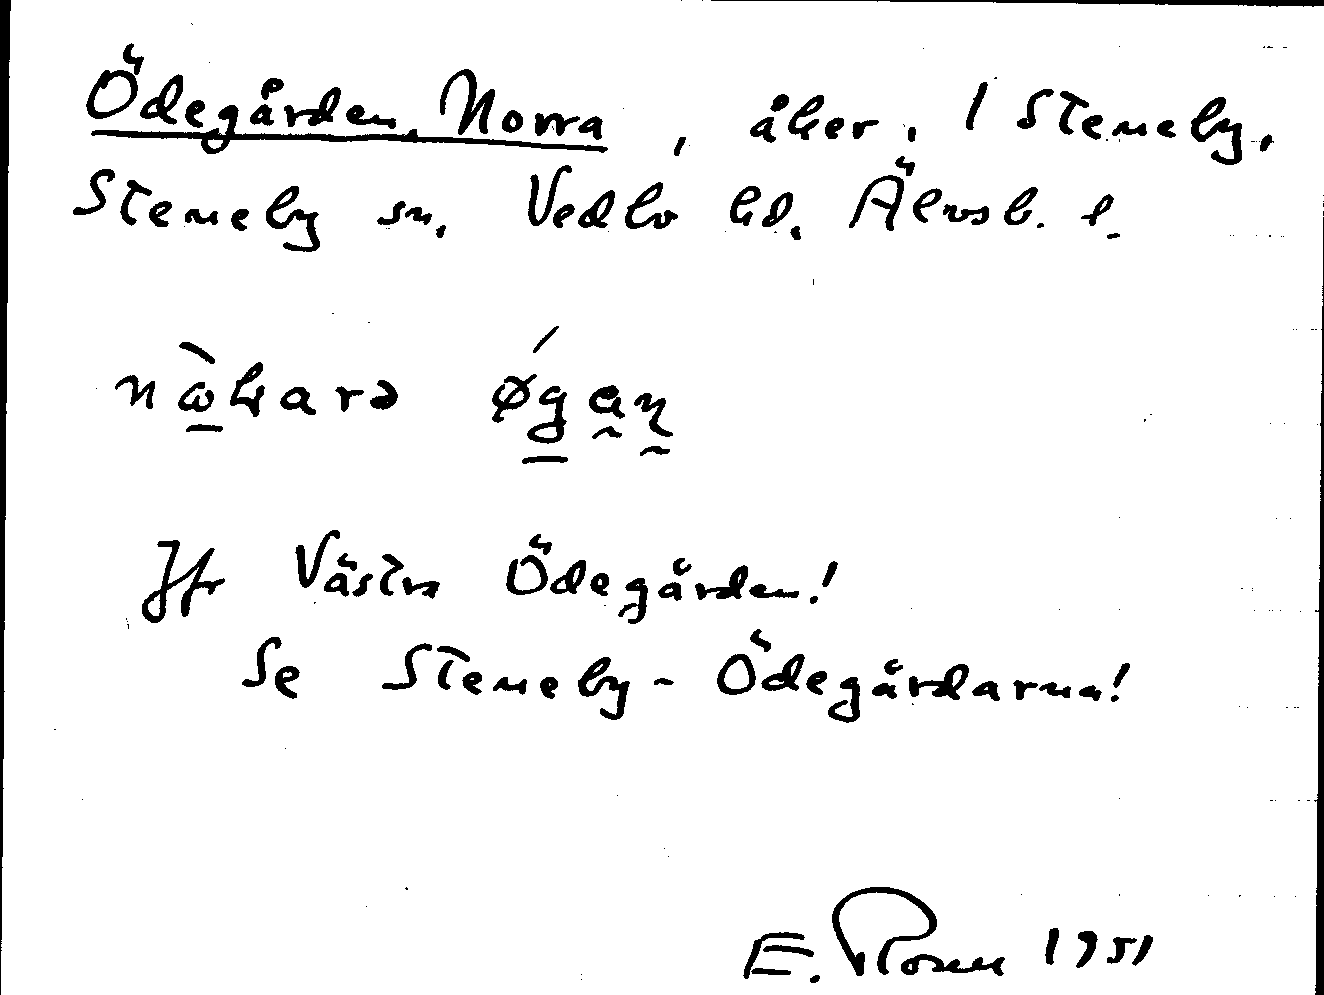 Ödegården, Norra, åker, 1 Steneby,
Steneby sn, Vedbo hd, Älvsb. l.
Jfr Västra Ödegården!
Se Steneby-Ödegårdarna!
E. Rosén 1951